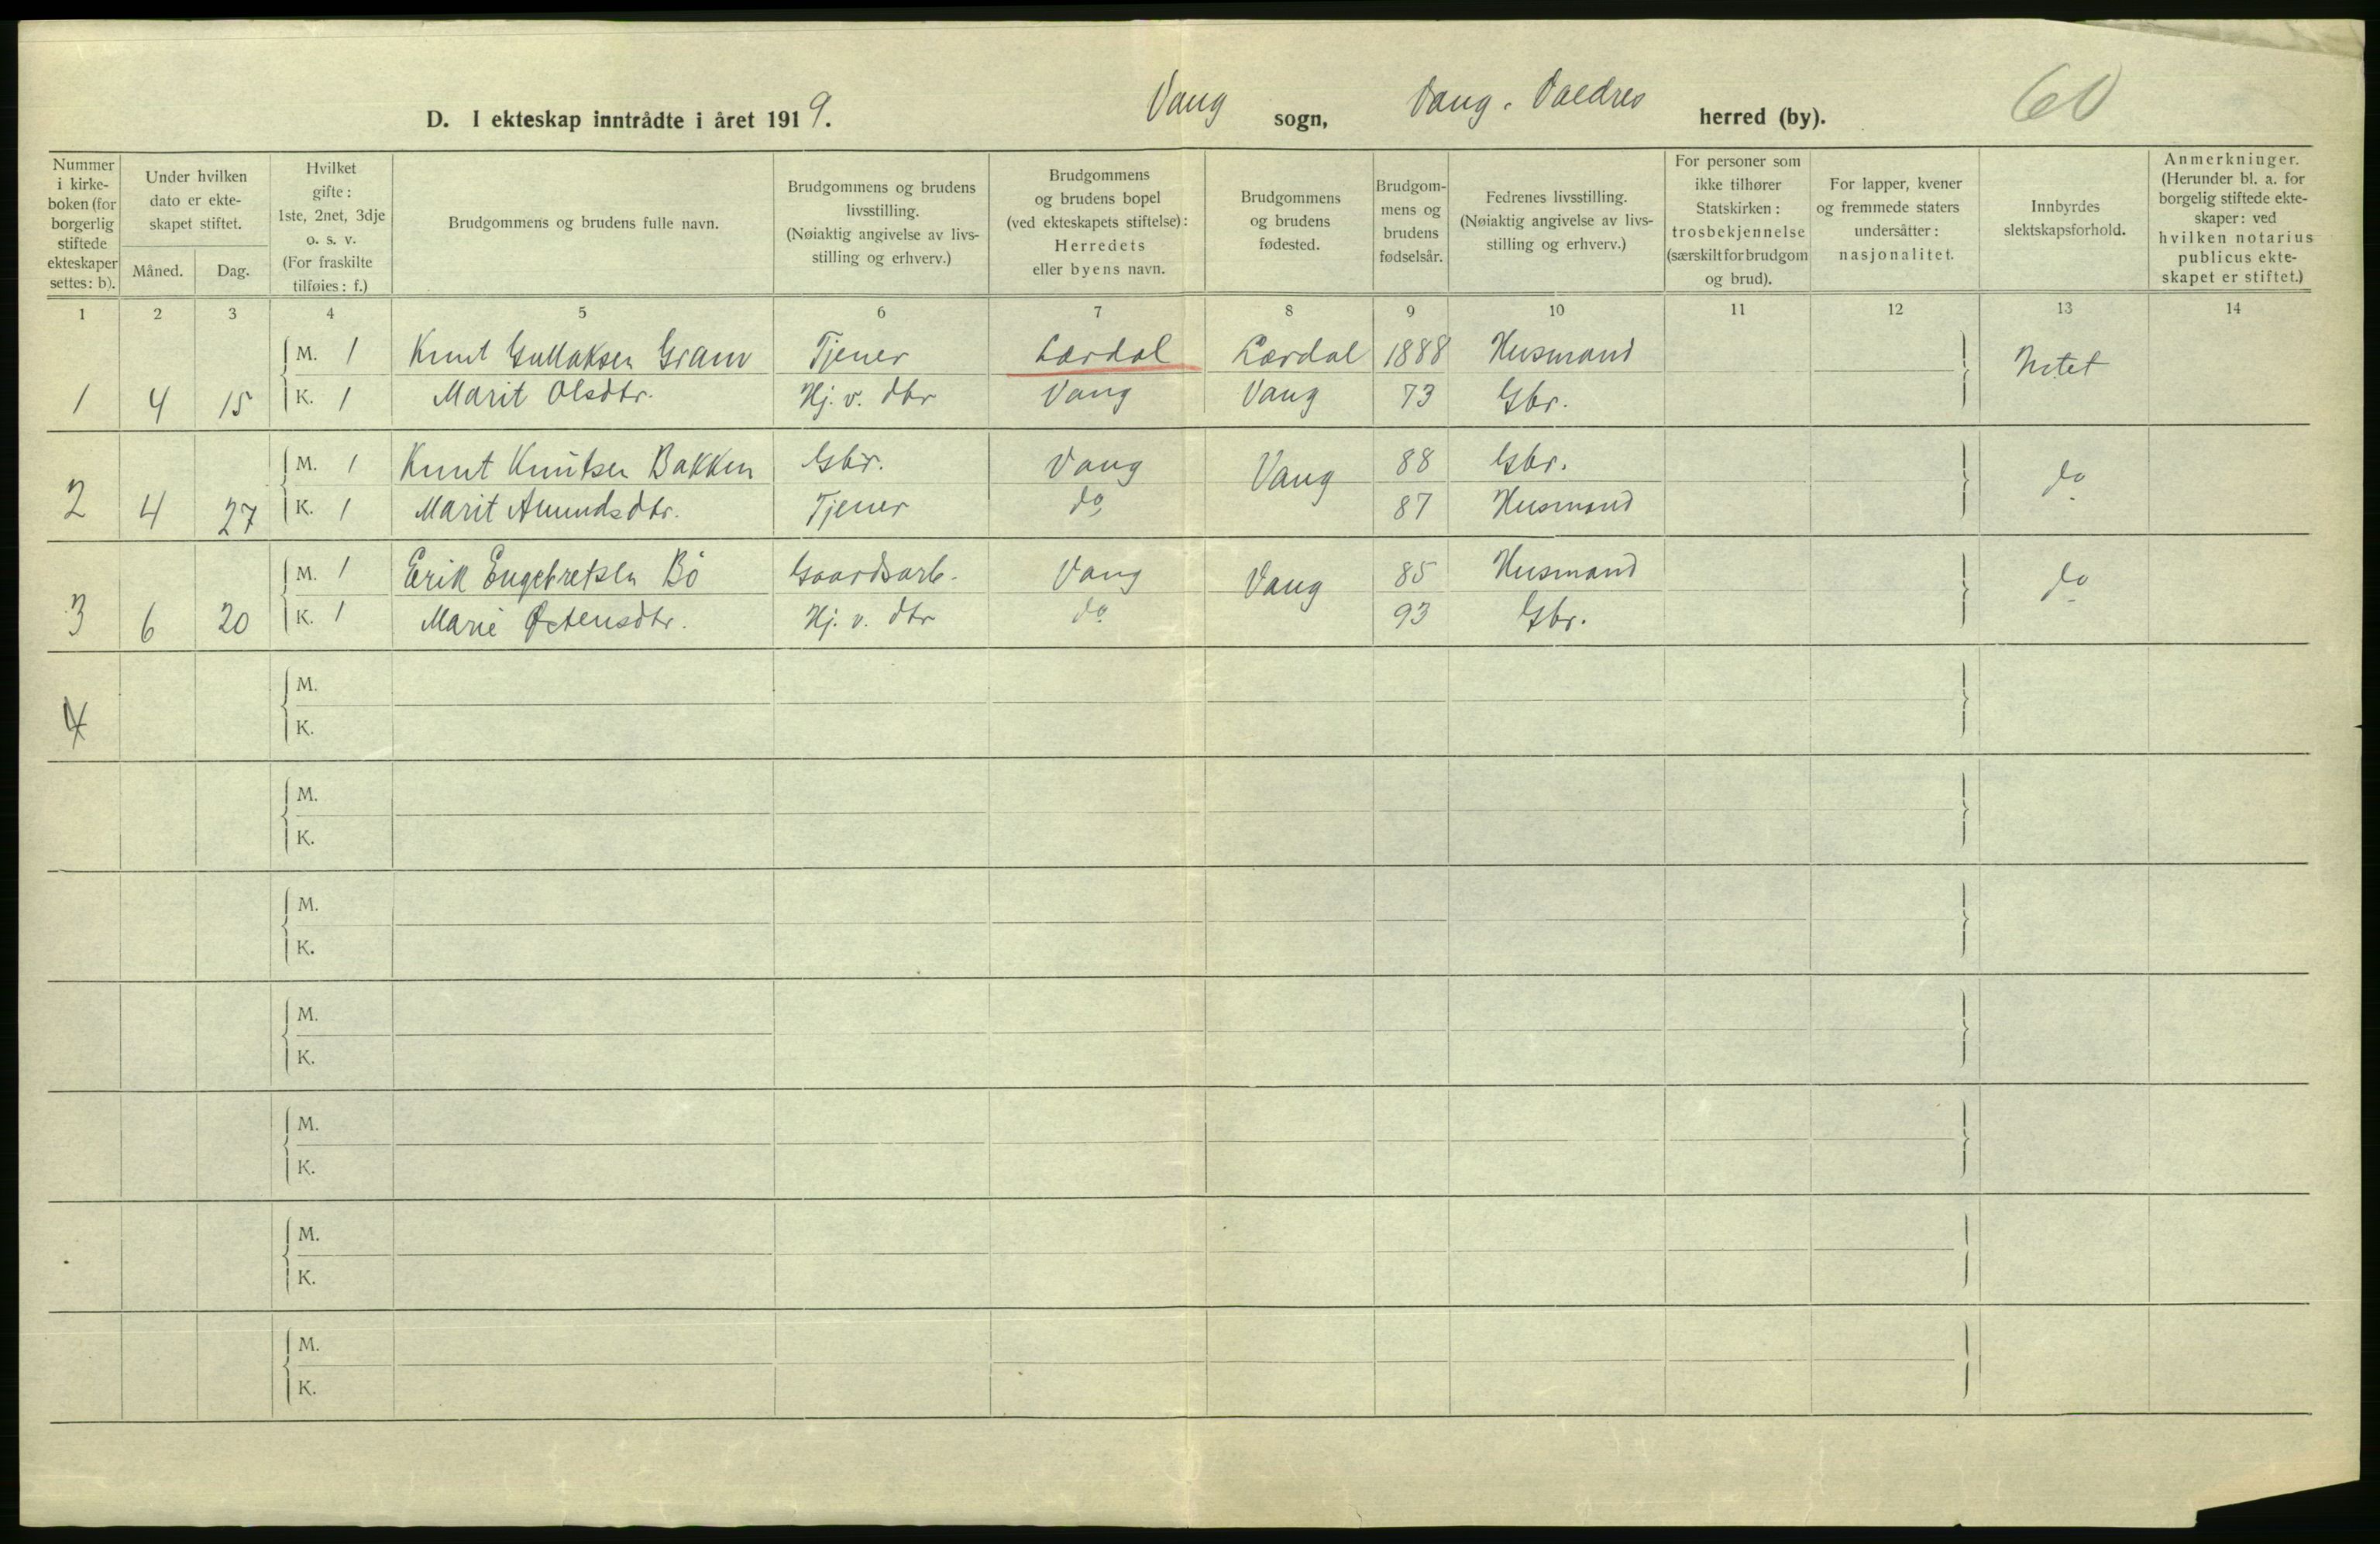 D. I ekteskap inntrådte i året 1919. Vang sogn, Vang. Valdres herred (by). 60
Nummer i kirke-boken (for borgerlig stiftede ekteskaper settes: b).
Under hvilken dato er ekte-skapet stiftet.
Måned. Dag.
Hvilket gifte: 1ste, 2net, 3dje o. s. v. (For fraskilte tilføies: f.)
Brudgommens og brudens fulle navn.
Brudgommens og brudens livsstilling. (Nøiaktig angivelse av livs-stilling og erhverv.)
Brudgommens og brudens bopel (ved ekteskapets stiftelse): Herredets eller byens navn.
Brudgommens og brudens fødested.
Brudgom-mens og brudens fødselsår.
Fedrenes livsstilling. (Nøiaktig angivelse av livs-stilling og erhverv.)
For personer som ikke tilhører Statskirken: trosbekjennelse (særskilt for brudgom og brud).
For lapper, kvener og fremmede staters undersåtter: nasjonalitet.
Innbyrdes slektskapsforhold.
Anmerkninger. (Herunder bl. a. for borgelig stiftede ekte-skaper: ved hvilken notarius publicus ekte-skapet er stiftet.)
1 2 3 4 5 6 7 8 9 10 11 12 13 14
M. 1 Knut Gullaksen Gram Tjener Lærdal Lærdal 1888 Husmand Intet
1 4 15 K. 1 Marit Olsdtr. Hj. v. dtr Vang Vang 73 Gbr.
M. 1 Knut Knutsen Bakken Gbr. Vang Vang 88 Gbr. do
2 4 27 K. 1 Marit Amundsdtr. Tjener do 87 Husmand
M. 1 Erik Engebretsen Bö Gaardsarb. Vang Vang 85 Husmand do
3 6 20 K. 1 Marie Østensdtr. Hj. v. dtr do 93 Gbr.
M.
4 K.
M.
K.
M.
K.
M.
K.
M.
K.
M.
K.
M.
K.